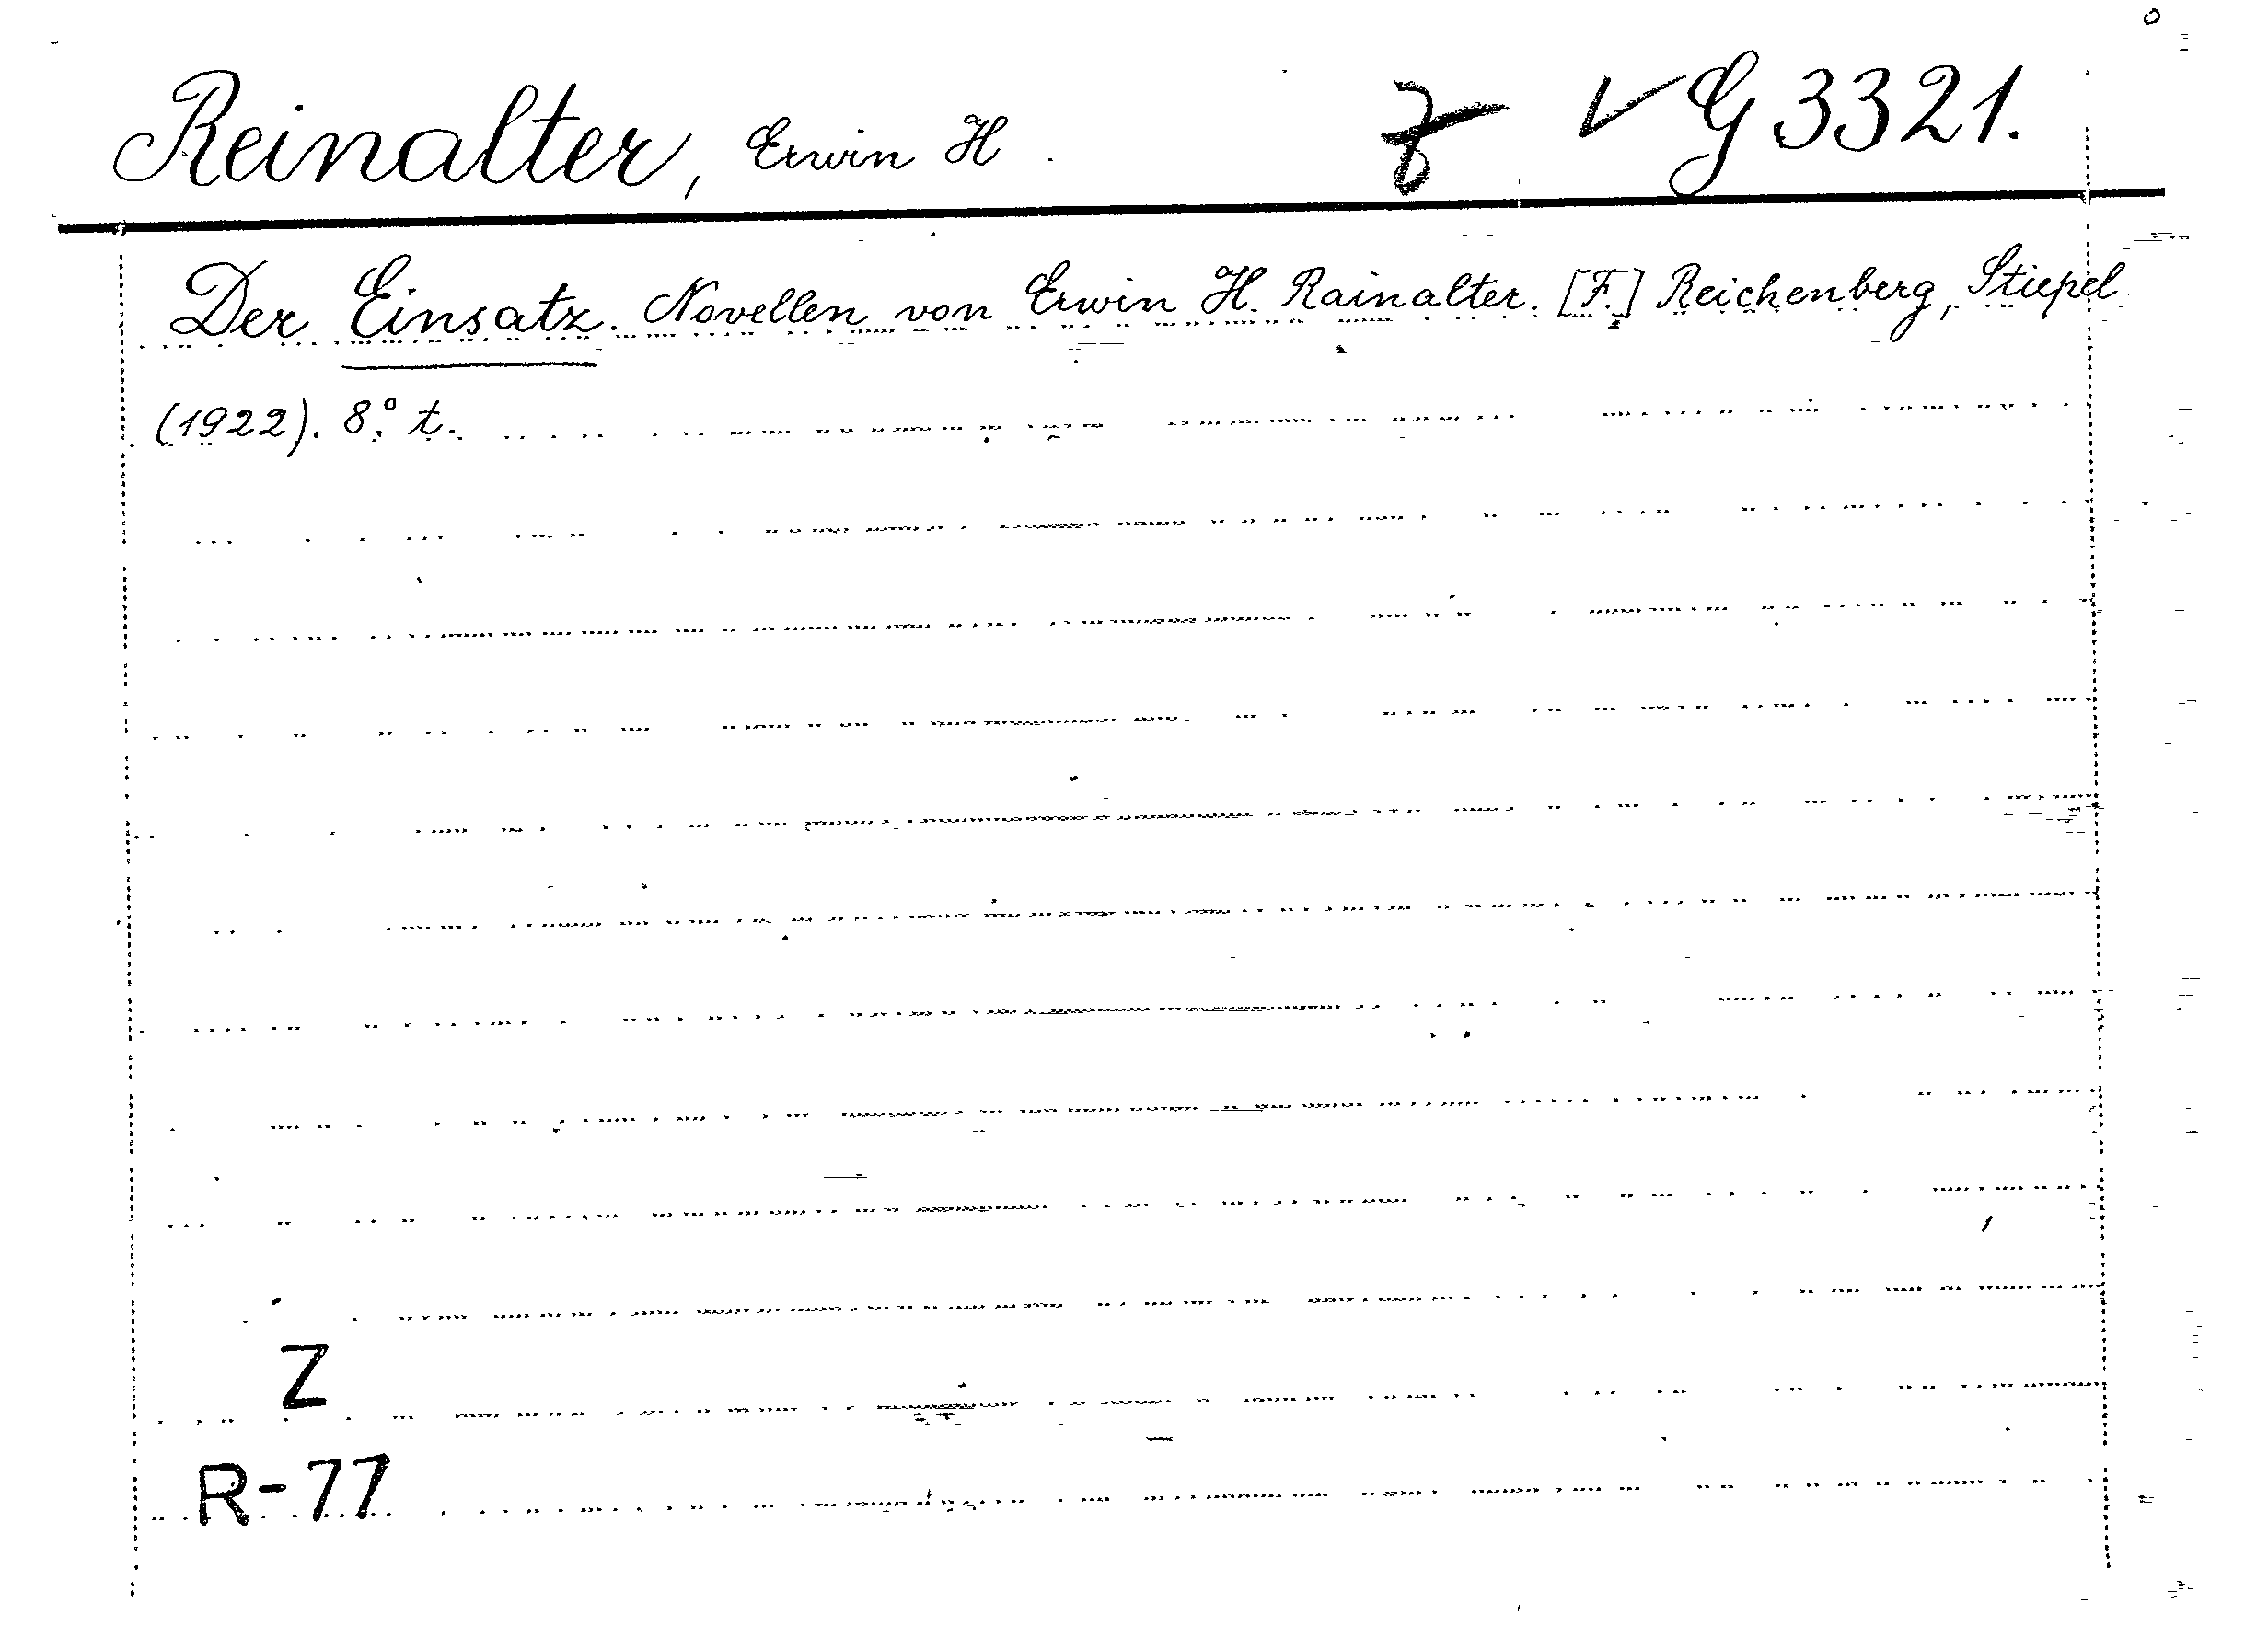 Reinalter, Erwin H. z ✓ G 3321.
Der Einsatz. Novellen von Erwin H. Rainalter. [F.] Reichenberg, Stiepel
(1922). 8° t.
Z
R-77